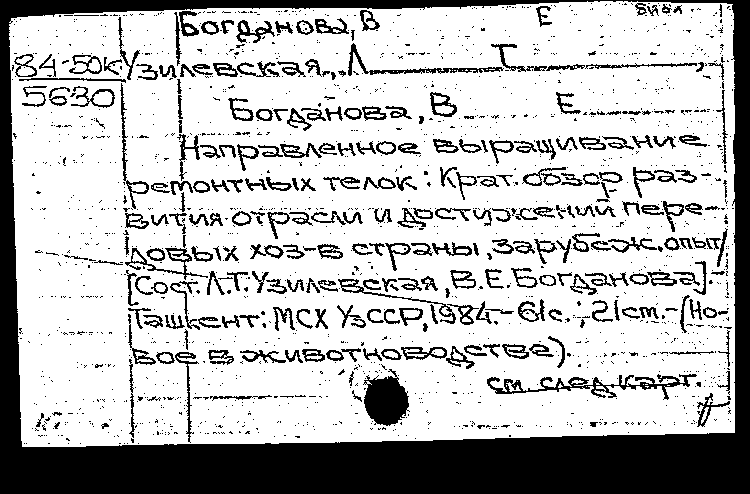 Богданова, В Е
84-50к Узилевская, Л Т ,
5630
Богданова, В Е
Направленное выращивание
ремонтных телок: Крат. обзор раз-
вития отрасли и достижений пере-
довых хоз-в страны, зарубеж. опыт/
[Сост. Л.Т. Узилевская, В.Е. Богданова].-
Ташкент: МСХ УзССР, 1984.- 61с.; 21см.- (Но-
вое в животноводстве).
см. след. карт.